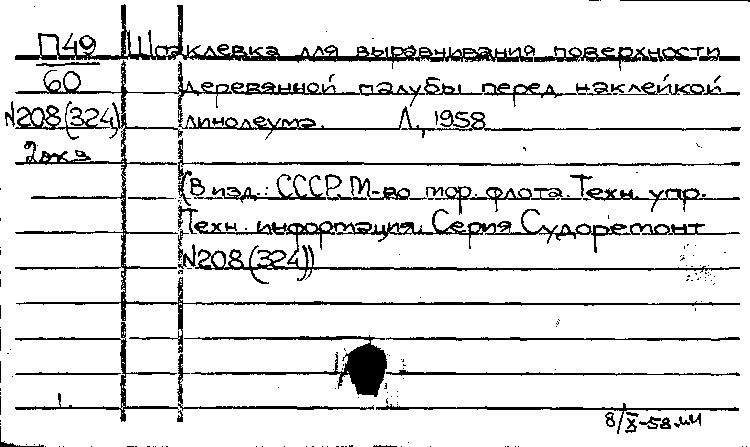 П49 Шпаклевка для выравнивания поверхности
60 деревянной палубы перед наклейкой
N208(324) линолеума. Л., 1958
2 экз
(В изд.: СССР. М-во мор. флота. Техн. упр.
Техн. информация. Серия Судоремонт
N208(324))
1.
8/X-58